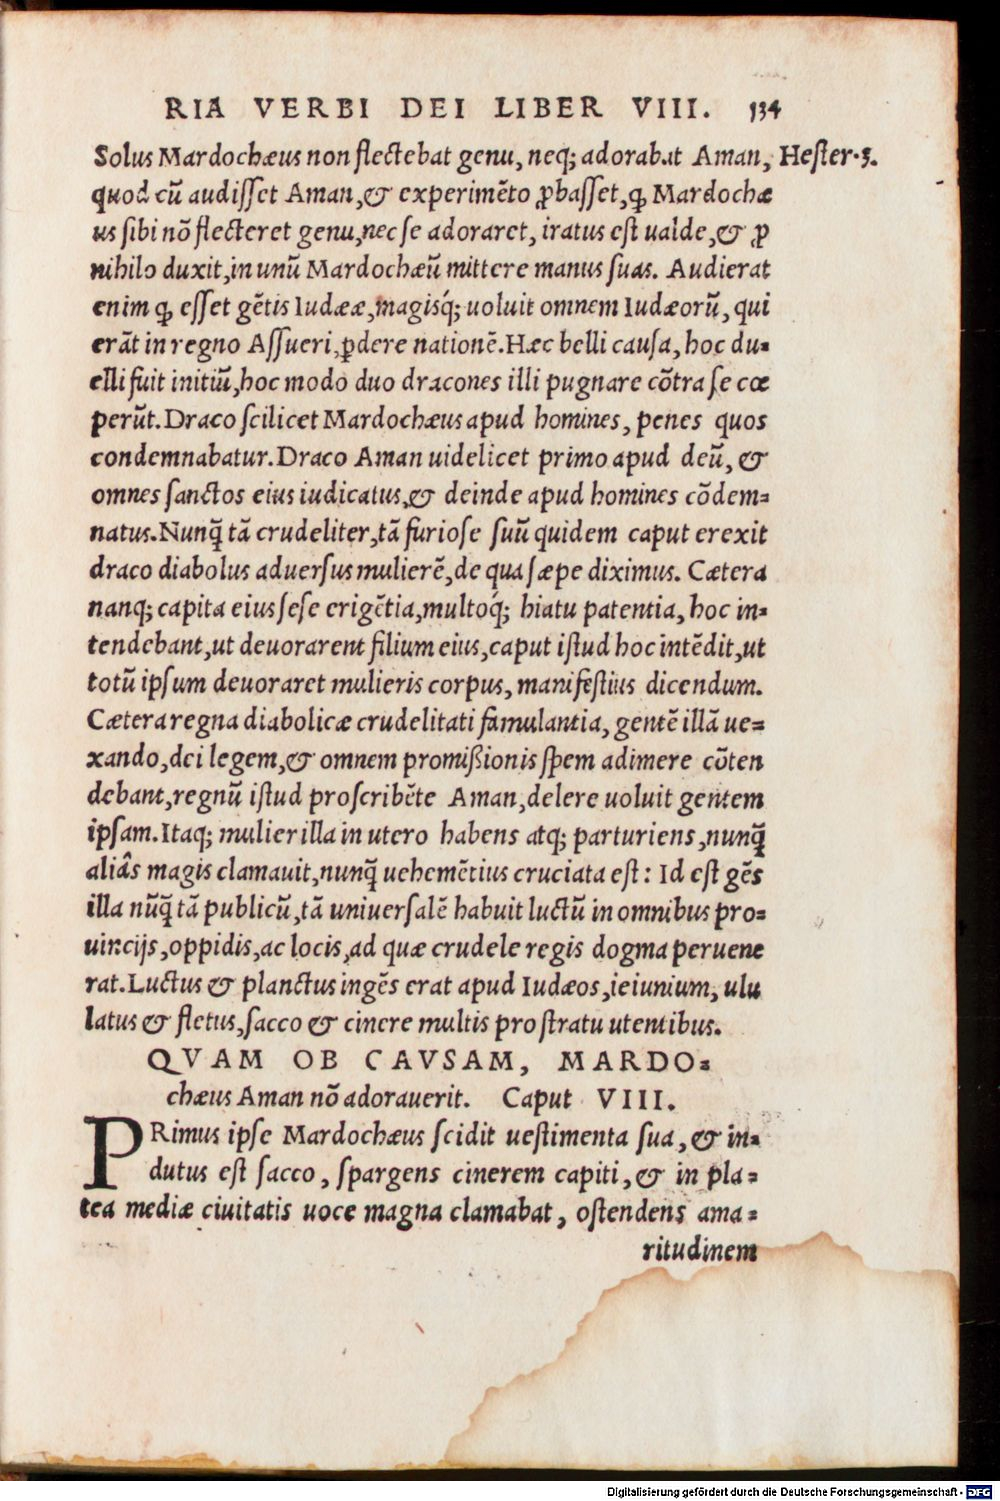 RIA VERBI DEI LIBER VIII. 134
Solus Mardochæus non flectebat genu, neq; adorabat Aman, Hester.3.
quod cũ audisset Aman, & experimẽto ꝓbasset, ꝙ Mardochæ
us sibi nõ flecteret genu, nec se adoraret, iratus est ualde, & ꝓ
nihilo duxit, in unũ Mardochæũ mittere manus suas. Audierat
enim ꝙ esset gẽtis Iudææ, magisq́; uoluit omnem Iudæorũ, qui
erãt in regno Assueri, ꝑdere nationẽ. Hæc belli causa, hoc du=
elli fuit initiũ, hoc modo duo dracones illi pugnare cõtra se cœ
perũt. Draco scilicet Mardochæus apud homines, penes quos
condemnabatur. Draco Aman uidelicet primo apud deũ, &
omnes sanctos eius iudicatus, & deinde apud homines cõdem=
natus. Nunq̃ tã crudeliter, tã furiose suũ quidem caput erexit
draco diabolus aduersus mulierẽ, de qua sæpe diximus. Cætera
nanq; capita eius sese erigẽtia, multoq́; hiatu patentia, hoc in=
tendebant, ut deuorarent filium eius, caput istud hoc intẽdit, ut
totũ ipsum deuoraret mulieris corpus, manifestius dicendum.
Cætera regna diabolicæ crudelitati famulantia, gentẽ illã ue=
xando, dei legem, & omnem promißionis spem adimere cõten
debant, regnũ istud proscribẽte Aman, delere uoluit gentem
ipsam. Itaq; mulier illa in utero habens atq; parturiens, nunq̃
aliâs magis clamauit, nunq̃ uehemẽtius cruciata est: Id est gẽs
illa nũq̃ tã publicũ, tã uniuersalẽ habuit luctũ in omnibus pro=
uincijs, oppidis, ac locis, ad quæ crudele regis dogma peruene
rat. Luctus & planctus ingẽs erat apud Iudæos, ieiunium, ulu
latus & fletus, sacco & cinere multis pro stratu utentibus.
QVAM OB CAVSAM, MARDO=
chæus Aman nõ adorauerit. Caput VIII.
PRimus ipse Mardochæus scidit uestimenta sua, & in=
dutus est sacco, spargens cinerem capiti, & in pla=
tea mediæ ciuitatis uoce magna clamabat, ostendens ama=
ritudinem
Digitalisierung gefördert durch die Deutsche Forschungsgemeinschaft - DFG